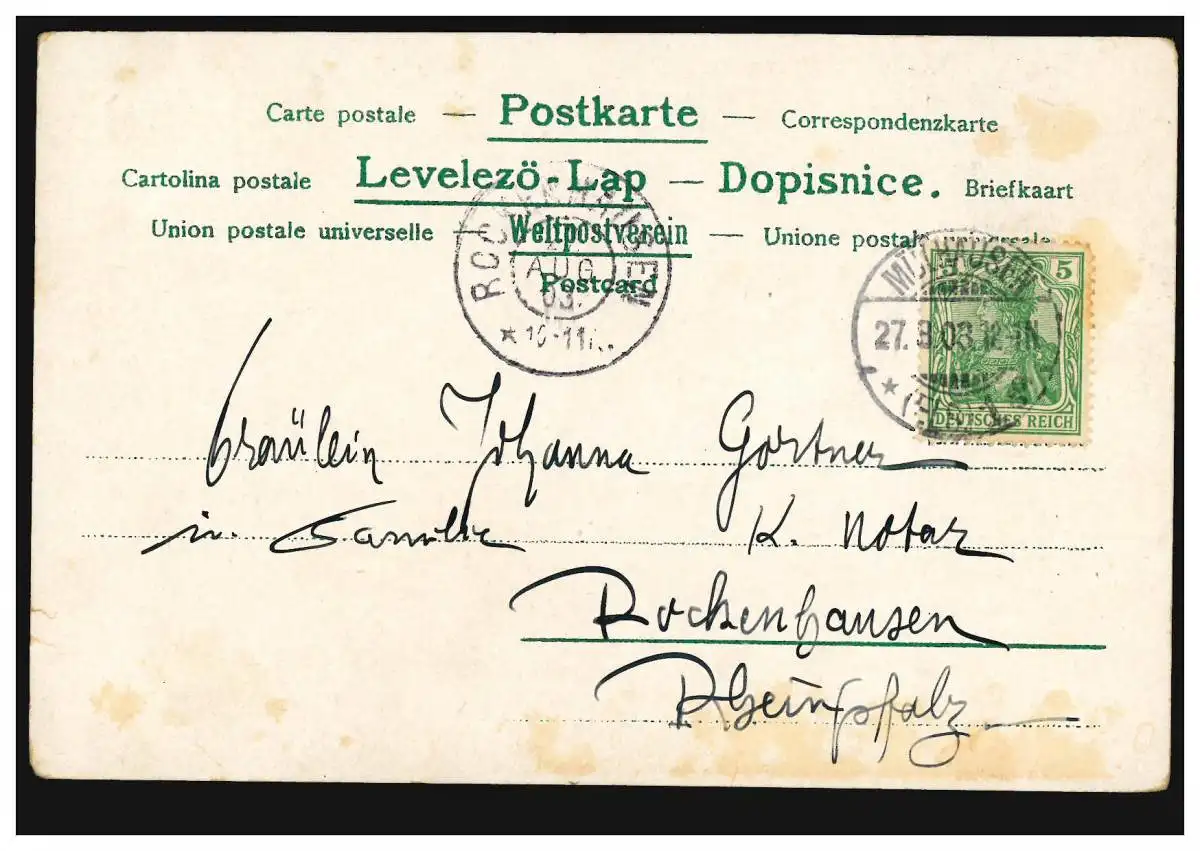 Carte postale — Postkarte — Correspondenzkarte
Cartolina postale Levelezö-Lap — Dopisnice. Briefkaart
Union postale universelle — Weltpostverein — Unione postale universale
Postcard
ROCKENHAUSEN
AUG
03.
* 10-11
MÜLHAUSEN
27. 8.03. 12-1N.
*
5 5
DEUTSCHES REICH
Fräulein Johanna Gortner
in Familie K. Notar
Rockenhausen
Rheinpfalz